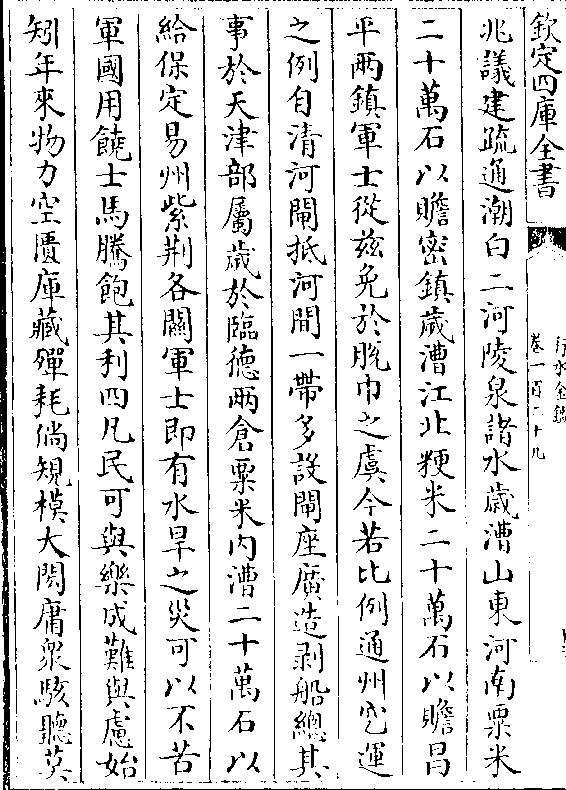 欽定四庫全書
行水金鑑
卷一百二十九
兆議建疏通潮白二河陵泉諸水歲漕山東河南粟米
二十萬石以贍密鎮歲漕江北粳米二十萬石以贍昌
平两鎮軍士從兹免於脱巾之虞今若比例通州空運
之例自清河閘抵河間一帶多設閘座廣造剥船總其
事於天津部屬歲於臨德两倉粟米内漕二十萬石以
給保定易州紫荆各關軍士即有水旱之災可以不苦
軍國用饒士馬騰飽其利四凡民可與樂成難與慮始
矧年來物力空匱庫藏殫耗倘規模大闊庸衆駭聽莫